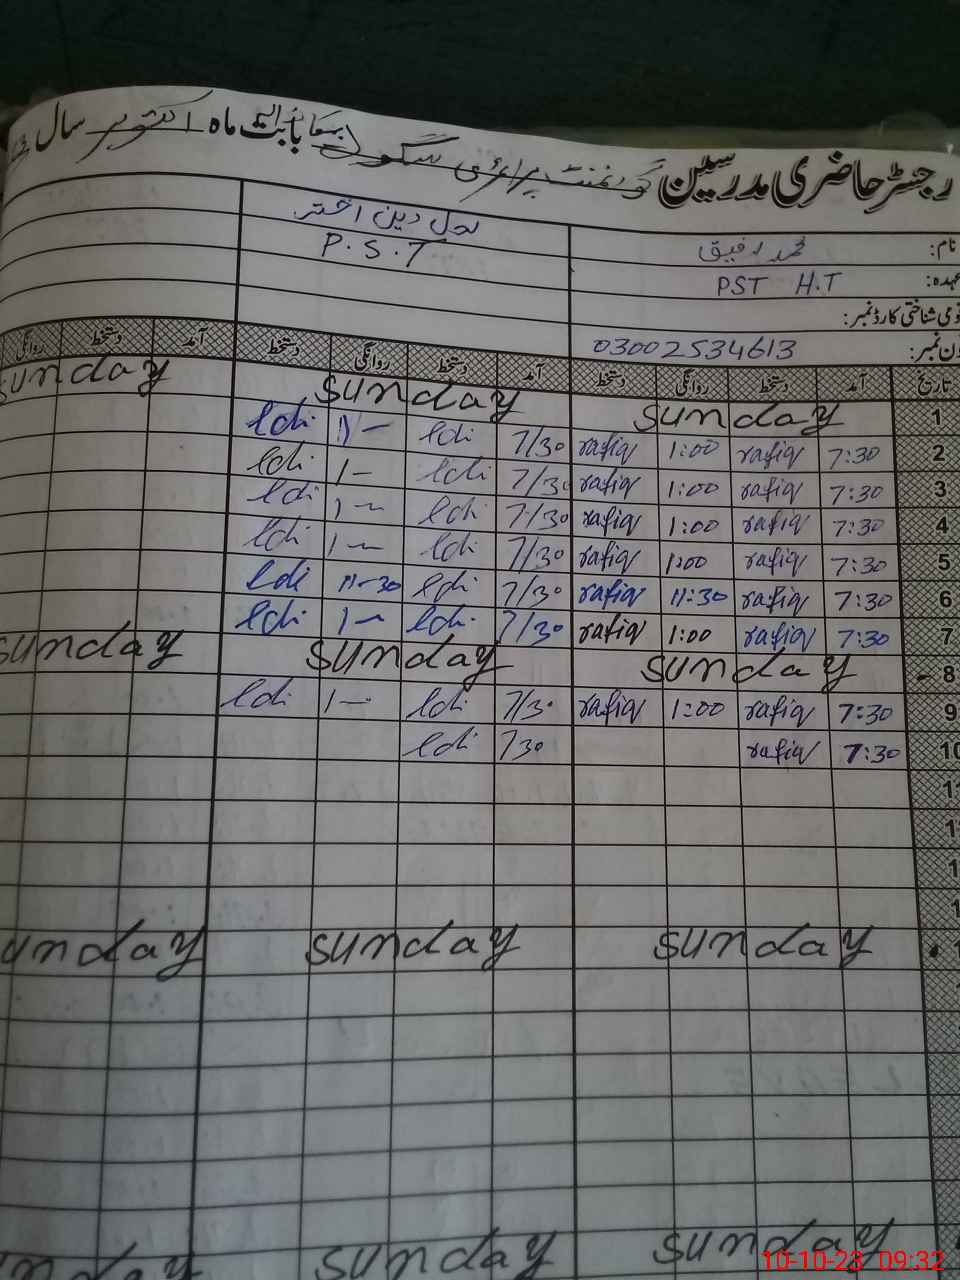 رجسٹر حاضری مدرسین گورنمنٹ پرائمری سکول بابت ماہ اکتوبر سال
نام: محمد رفیق
عہدہ: PST H.T
P.S.T
قومی شناختی کارڈ نمبر:
فون نمبر: 03002534613
تاریخ آمد دستخط روانگی دستخط آمد دستخط روانگی دستخط آمد دستخط روانگی
1 sunday sunday sunday
2 7:30 rafiq 1:00 rafiq 7/30 ldi 1/- ldi
3 7:30 rafiq 1:00 rafiq 7/30 ldi 1- ldi
4 7:30 rafiq 1:00 rafiq 7/30 ldi 1- ldi
5 7:30 rafiq 1:00 rafiq 7/30 ldi 1- ldi
6 7:30 rafiq 11:30 rafiq 7/30 ldi 11-30 ldi
7 7:30 rafiq 1:00 rafiq 7/30 ldi 1- ldi
8 sunday sunday sunday
9 7:30 rafiq 1:00 rafiq 7/30 ldi 1- ldi
10 7:30 rafiq 730 ldi
11
sunday sunday sunday
sunday sunday
10-10-23 09:32